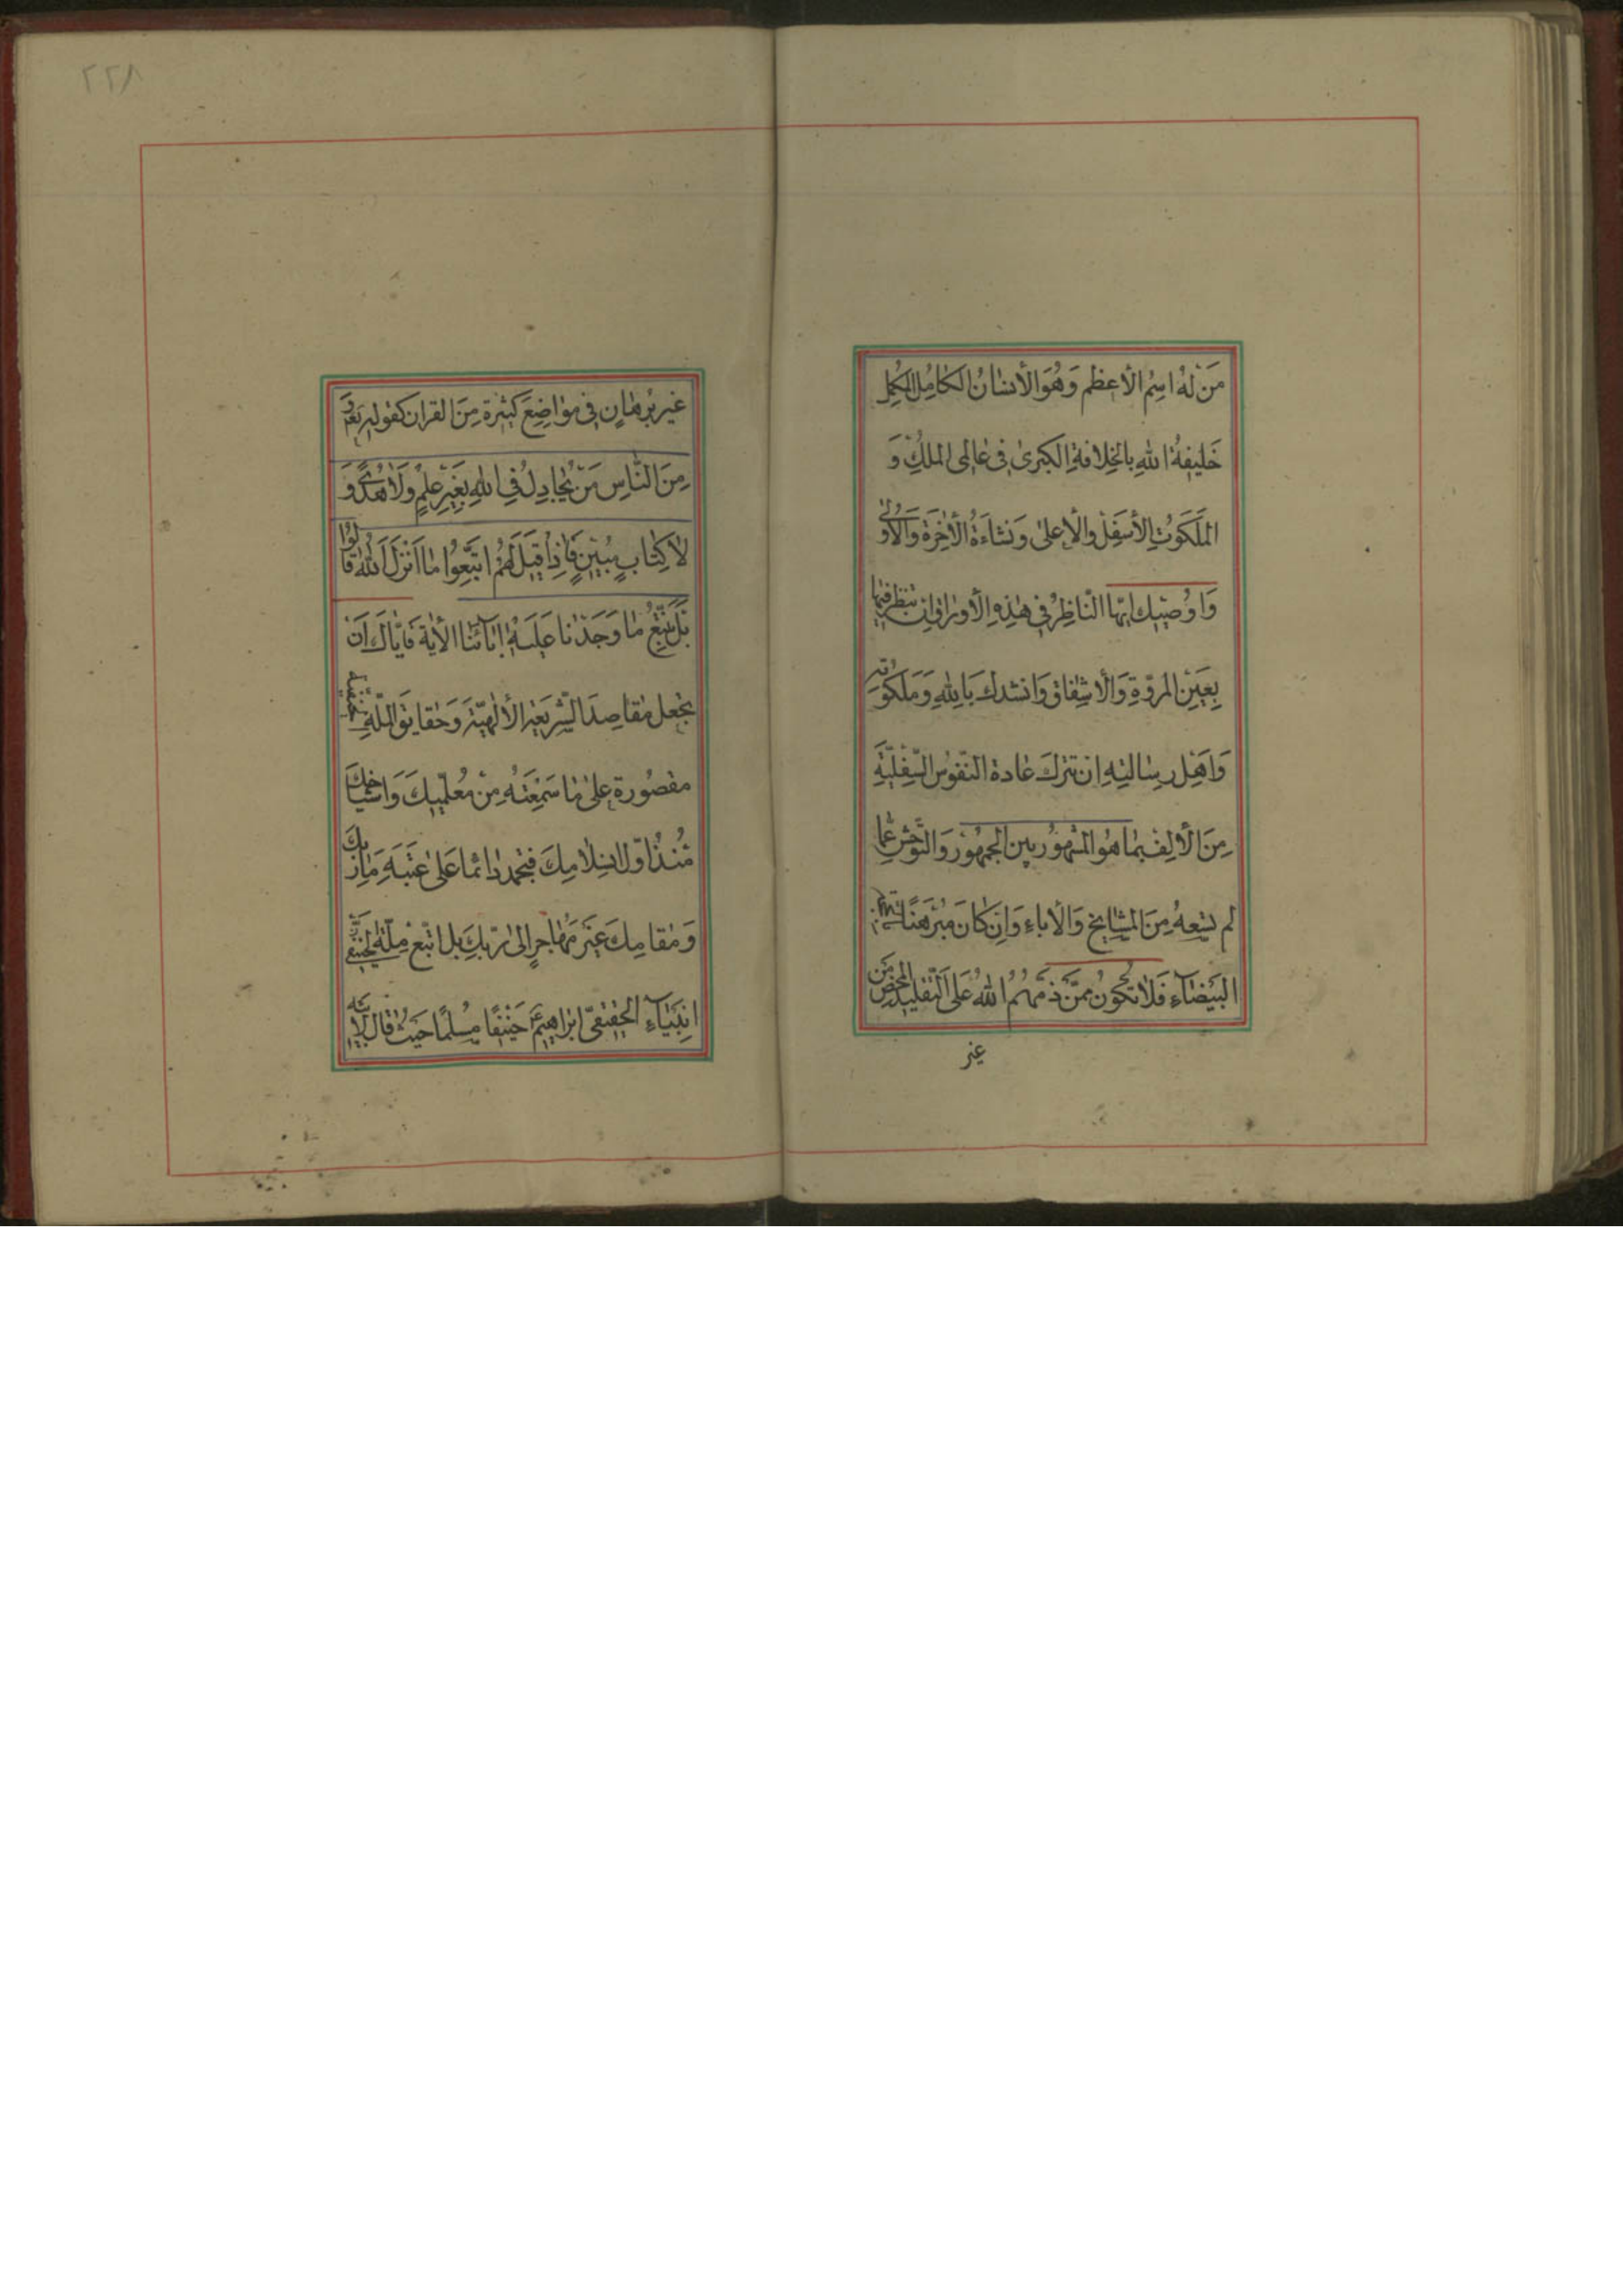 مَنْ لَهُ اسِمُ الأعظم وَهُوَ الأنسٰانُ الكٰامِل المكمِل
خَليفةُ اللهِ بالخِلافةِ الكبرىٰ فى عٰالمى الملكِ وَ
المَلَكوُتِ الأسفل والأعلى وَنشاءَةُ الأخِرَة وَالأولىٰ
وَاوُصيك ايّها النّاظِرُ فى هٰذِهِ الأوراق ان تنظر فيها
بِعَينِ المروّةِ وَالأشفاق وَانشدك بِاللهِ وَمَلَكوُته
وَاَهِل رسٰالتِهِ ان تترك عٰادة النّفوُس السّفليّة
مِنَ الألِف بما هُوَ المشهُور بين الجمهُور وَالتّوحّش عمّا
لم تسعهُ مِنَ المشٰايخ وَالأباء وَاِن كٰانَ مبرهَنًا
البَيضٰآءِ فَلا تكوُن ممّن ذمّهُم اللهُ عَلَى التّقليد المحض مِن
غير
٢٢٨
غير برهٰانٍ فى موٰاضِعَ كثيرة مِنَ القران كقوله تعٰ وَ
مِنَ النّاسِ مَنْ يُجٰادِلُ فِى اللهِ بِغَيرِ عِلمٍ وَلا هُدًى وَ
لا كِتابٍ مُبينٍ فَاِذا قيلَ لَهُمُ اتّبَعِوُا ما اَنْزَلَ اللهُ قالوُا
بَل نَتّبِعُ ما وَجَدْنا عَلَيهِ ابٰآئنا الأية فَايّاك اَن
تجعل مقٰاصِدَ الشّريعَة الألٰهيّة وَحَقايق الملّةِ
مقصُورة عَلىٰ مٰا سَمعتَهُ مِنْ مُعلّميكَ وَاشيٰاخكَ
مُنذُ اوّل اسِلامِكَ فتجمد دٰائما عَلىٰ عَتَبَةِ بٰابِكَ
وَمقٰامِكَ غيَر مهٰاجرٍ الىٰ رَبّكِ بل اتّبع مِلّة
انبيٰآءِ الحقيقىّ ابراهيمَ حَنيفًا مسُلمًا حَيثُ قٰال لأبيه